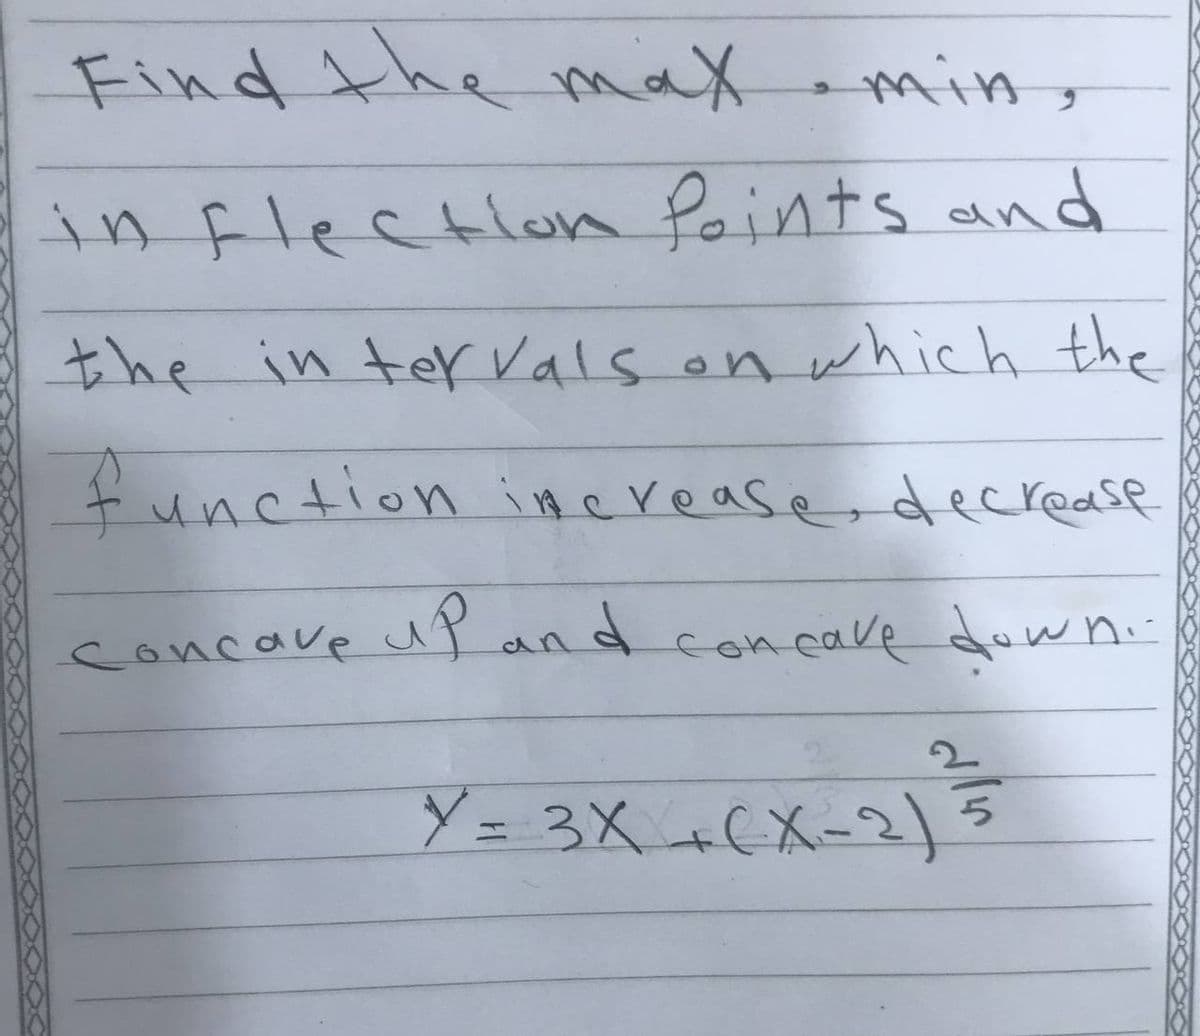 Find the max, min,
in flection Points and
the in tervals on which the
function increase, decrease
concave up and concave down.-
Y = 3X + (X-2)^2/5